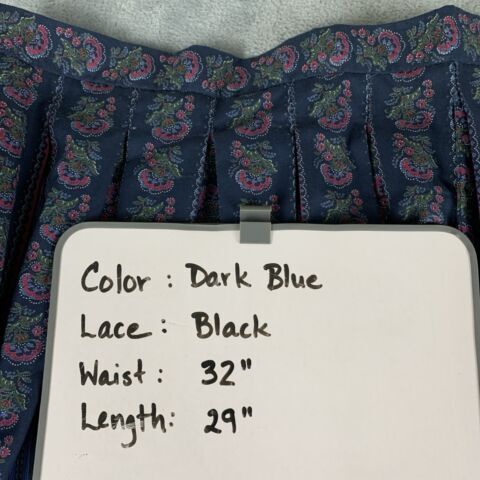 Color : Dark Blue
Lace : Black
Waist : 32"
Length: 29"